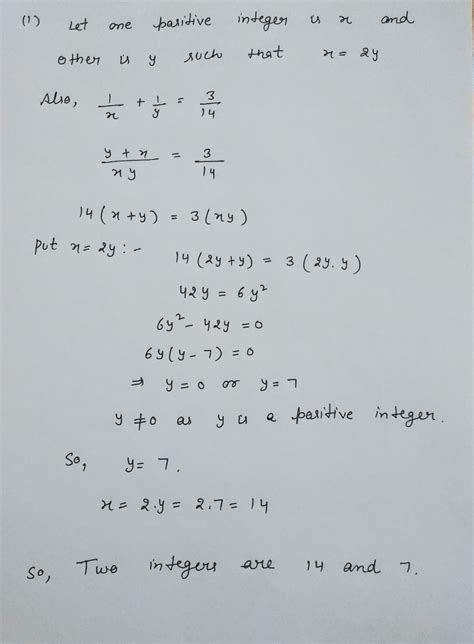 (1) Let one pasitive integer is x and
other is y such that x = 2y
Also, 1/x + 1/y = 3/14
y + x / xy = 3/14
14 (x + y) = 3 (xy)
Put x = 2y :- 14 (2y + y) = 3 (2y. y)
42y = 6y²
6y² - 42y = 0
6y (y - 7) = 0
⇒ y = 0 or y = 7
y ≠ 0 as y is a pasitive integer.
So, y = 7.
x = 2.y = 2.7 = 14
So, Two integers are 14 and 7.